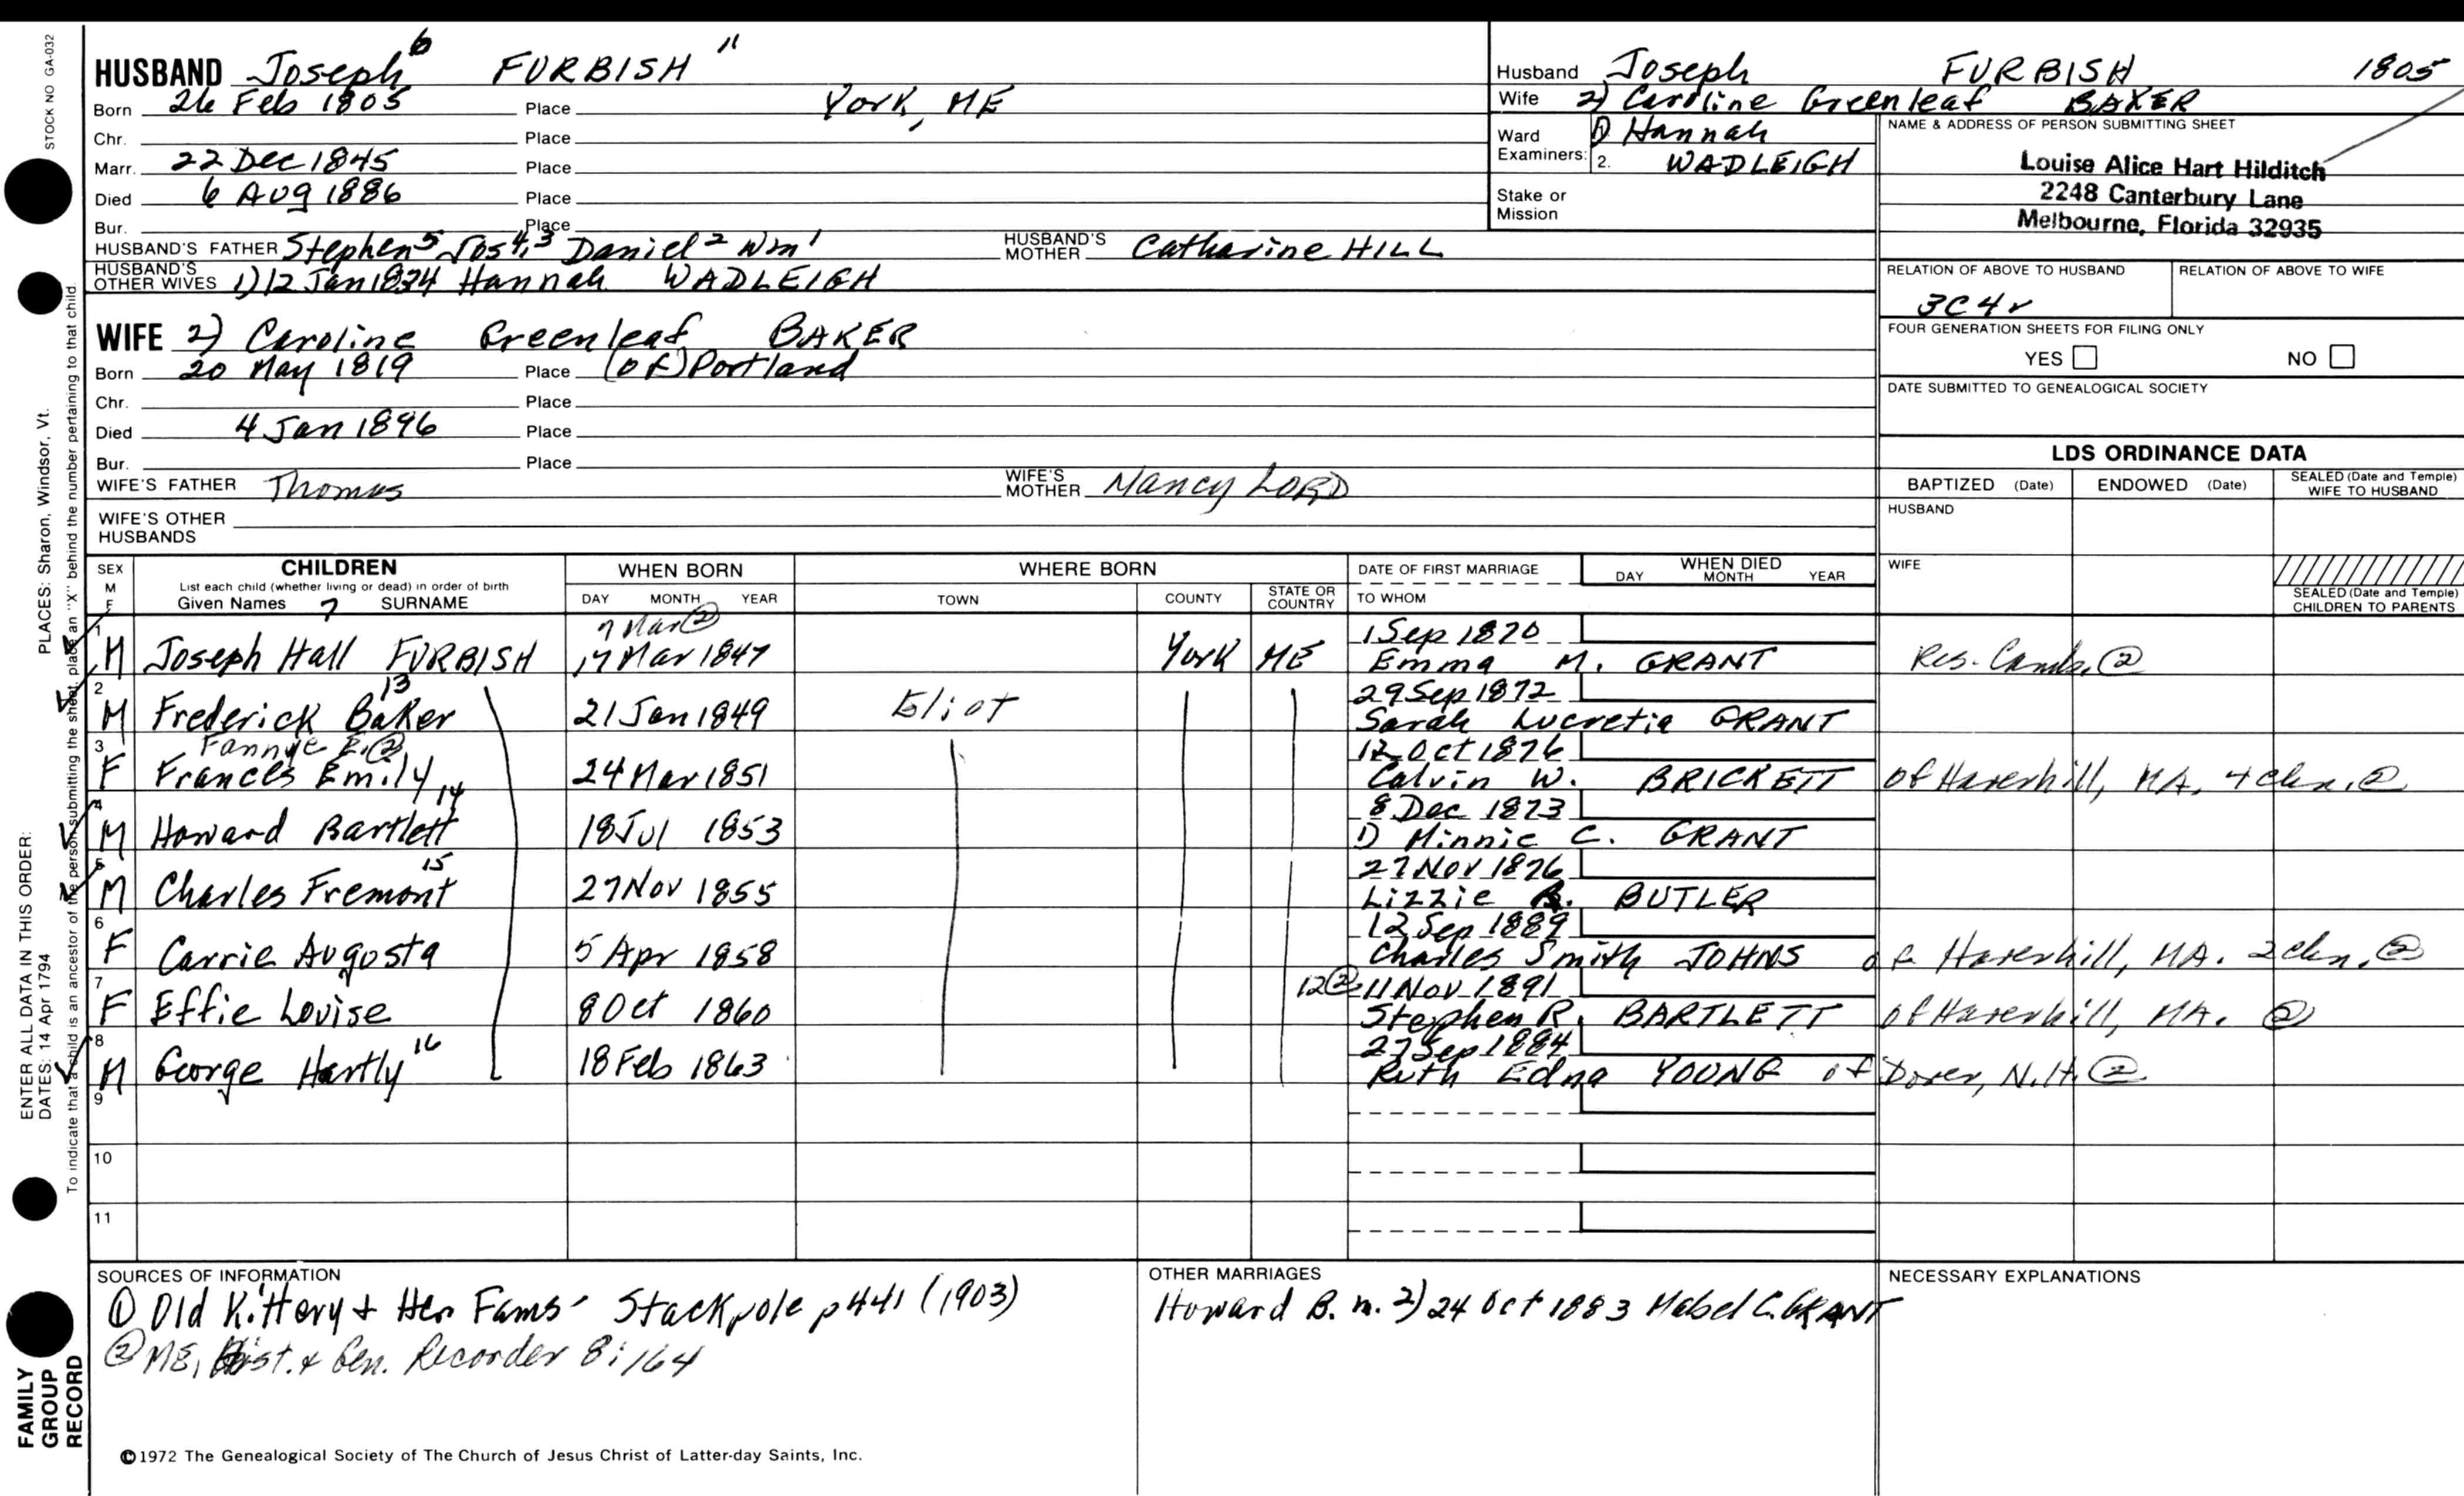 STOCK NO GA-032
HUSBAND Joseph 6 FURBISH "
Born 26 Feb 1805 Place York, ME
Chr. Place
Marr. 22 Dec 1845 Place
Died 6 Aug 1886 Place
Bur. Place
HUSBAND'S FATHER Stephen5 Jos4,3 Daniel2 Wm1 HUSBAND'S MOTHER Catharine HILL
HUSBAND'S OTHER WIVES 1) 12 Jan 1824 Hannah WADLEIGH
WIFE 2) Caroline Greenleaf BAKER
Born 20 May 1819 Place (of) Portland
Chr. Place
Died 4 Jan 1896 Place
Bur. Place
WIFE'S FATHER Thomas WIFE'S MOTHER Nancy LORD
WIFE'S OTHER HUSBANDS
Husband Joseph FURBISH 1805
Wife 2) Caroline Greenleaf BAKER
Ward Examiners: 1) Hannah
2. WADLEIGH
Stake or Mission
NAME & ADDRESS OF PERSON SUBMITTING SHEET
Louise Alice Hart Hilditch
2248 Canterbury Lane
Melbourne, Florida 32935
RELATION OF ABOVE TO HUSBAND RELATION OF ABOVE TO WIFE
3C4r
FOUR GENERATION SHEETS FOR FILING ONLY
YES NO
DATE SUBMITTED TO GENEALOGICAL SOCIETY
LDS ORDINANCE DATA
BAPTIZED (Date) ENDOWED (Date) SEALED (Date and Temple) WIFE TO HUSBAND
HUSBAND
WIFE
SEALED (Date and Temple) CHILDREN TO PARENTS
SEX M F CHILDREN WHEN BORN WHERE BORN DATE OF FIRST MARRIAGE WHEN DIED
List each child (whether living or dead) in order of birth
Given Names 7 SURNAME DAY MONTH YEAR TOWN COUNTY STATE OR COUNTRY TO WHOM DAY MONTH YEAR
7 Mar ② 1 Sep 1870
1 M Joseph Hall FURBISH 17 Mar 1847 York ME Emma M. GRANT Res. Camb. ②
13 29 Sep 1872
2 M Frederick Baker 21 Jan 1849 Eliot Sarah Lucretia GRANT
Fannye E. ② 12 Oct 1876
3 F Frances Emily 24 Mar 1851 Calvin W. BRICKETT of Haverhill, MA, 4 chn. ②
14 8 Dec 1873
4 M Howard Bartlett 18 Jul 1853 1) Minnie C. GRANT
15 27 Nov 1876
5 M Charles Fremont 27 Nov 1855 Lizzie BUTLER
12 Sep 1889
6 F Carrie Augosta 5 Apr 1858 Charles Smith JOHNS of Haverhill, MA. 2 chn. ②
12② 11 Nov 1891
7 F Effie Louise 8 Oct 1860 Stephen R. BARTLETT of Haverhill, MA. ②
16 27 Sep 1884
8 M George Hartly 18 Feb 1863 Ruth Edna YOUNG of Dover, N.H. ②
9
10
11
SOURCES OF INFORMATION
① Old Kittery & Her Fams - Stackpole p441 (1903)
② ME, Hist. & Gen. Recorder 8:164
OTHER MARRIAGES
Howard B. m. 2) 24 Oct 1883 Mabel C. GRANT
NECESSARY EXPLANATIONS
©1972 The Genealogical Society of The Church of Jesus Christ of Latter-day Saints, Inc.
FAMILY GROUP RECORD
ENTER ALL DATA IN THIS ORDER:
DATES: 14 Apr 1794
PLACES: Sharon, Windsor, Vt.
To indicate that a child is an ancestor of the person submitting the sheet, place an "X" behind the number pertaining to that child.